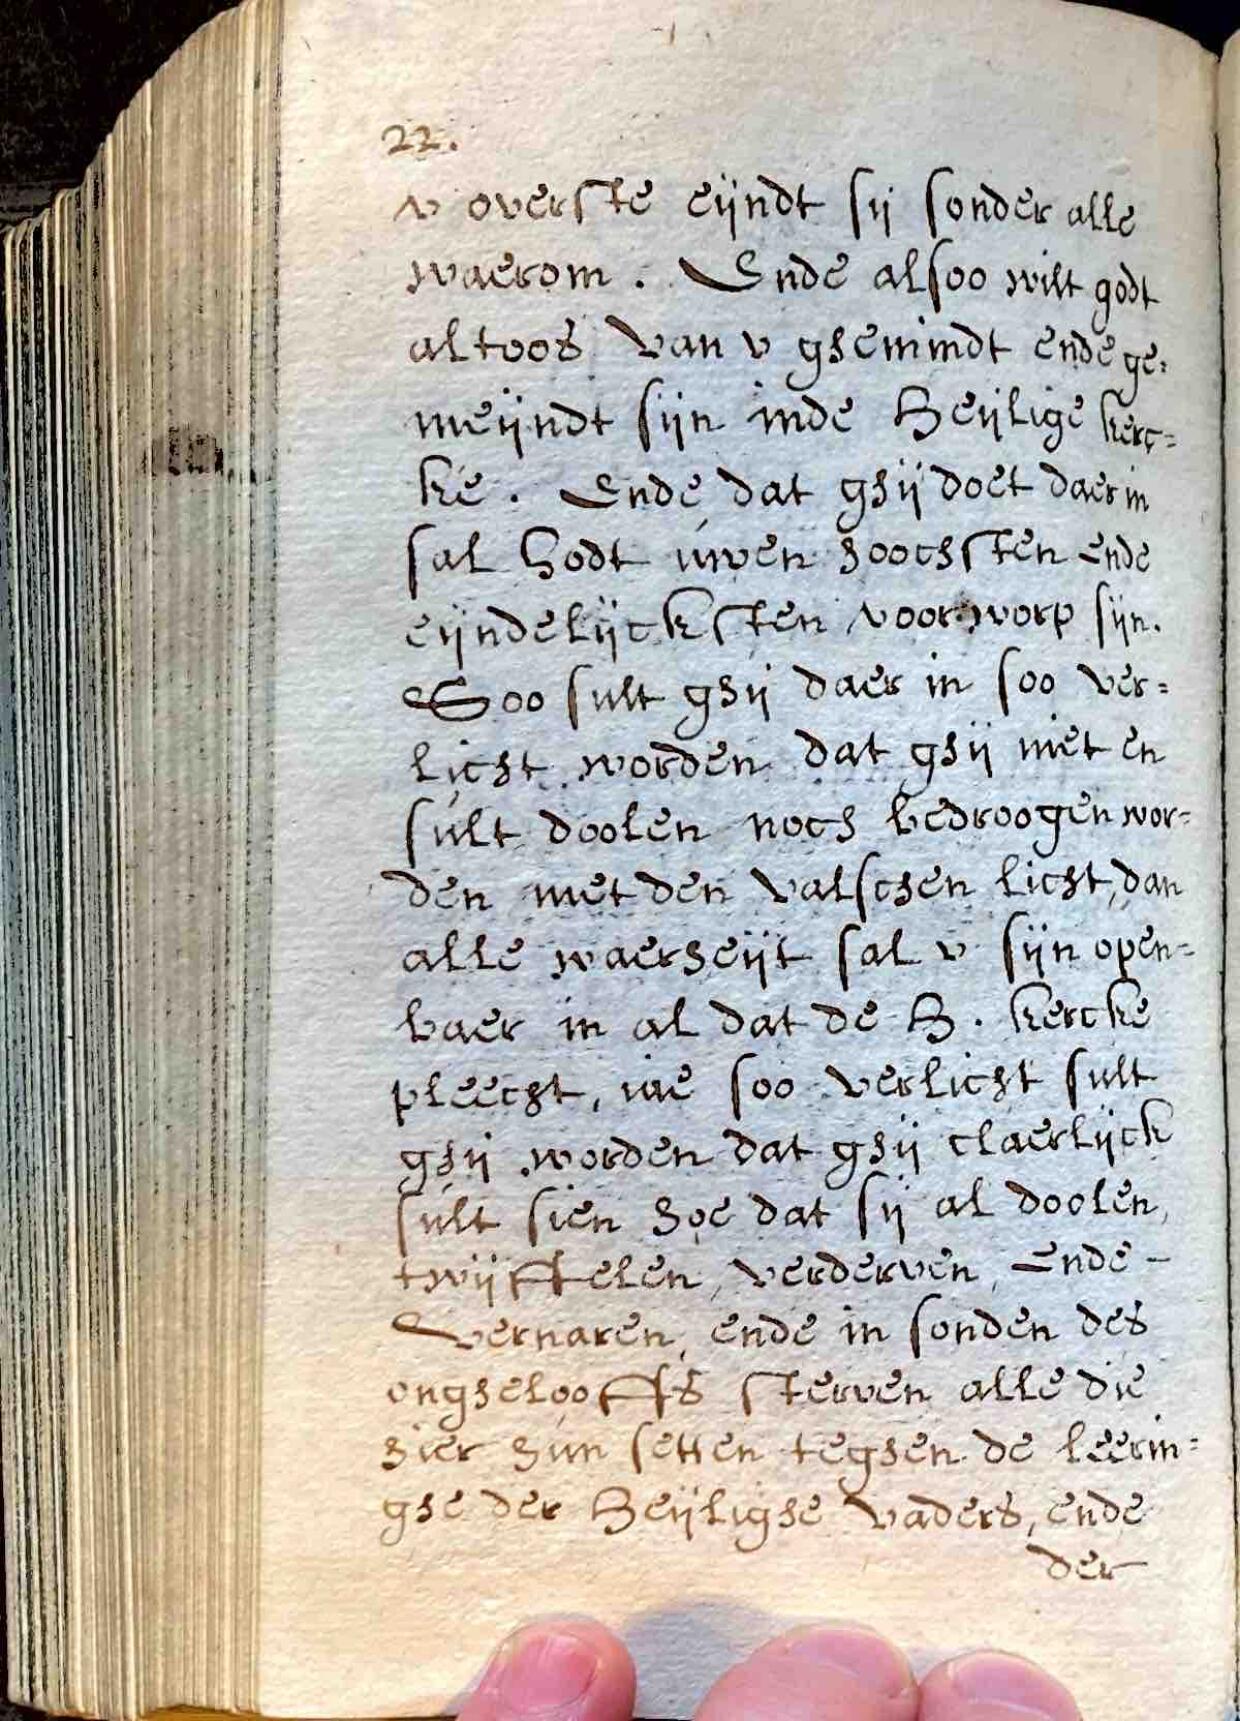 22.
v overste eijndt sij sonder alle
waerom. Ende alsoo wilt godt
altoos van v ghemindt ende ge:
meijndt sijn inde Heijlige kerc=
ke. Ende dat ghij doet daer in
sal Godt uwen hoochsten ende
eijndelijcksten voorworp sijn.
Soo sult ghij daer in soo ver=
licht worden dat ghij niet en
sult doolen noch bedroogen wor=
den met den valschen licht, dan
alle waerheijt sal v sijn open=
baer in al dat de H. kercke
pleecht, iae soo verlicht sult
ghij worden dat ghij claerlijck
sult sien hoe dat sij al doolen,
twijffelen, verderven, Ende -
Vernaren, ende in sonden des
ongheloofs sterven alle die
hier hun setten teghen de leerin=
ghe der Heijlighe vaders, ende
der